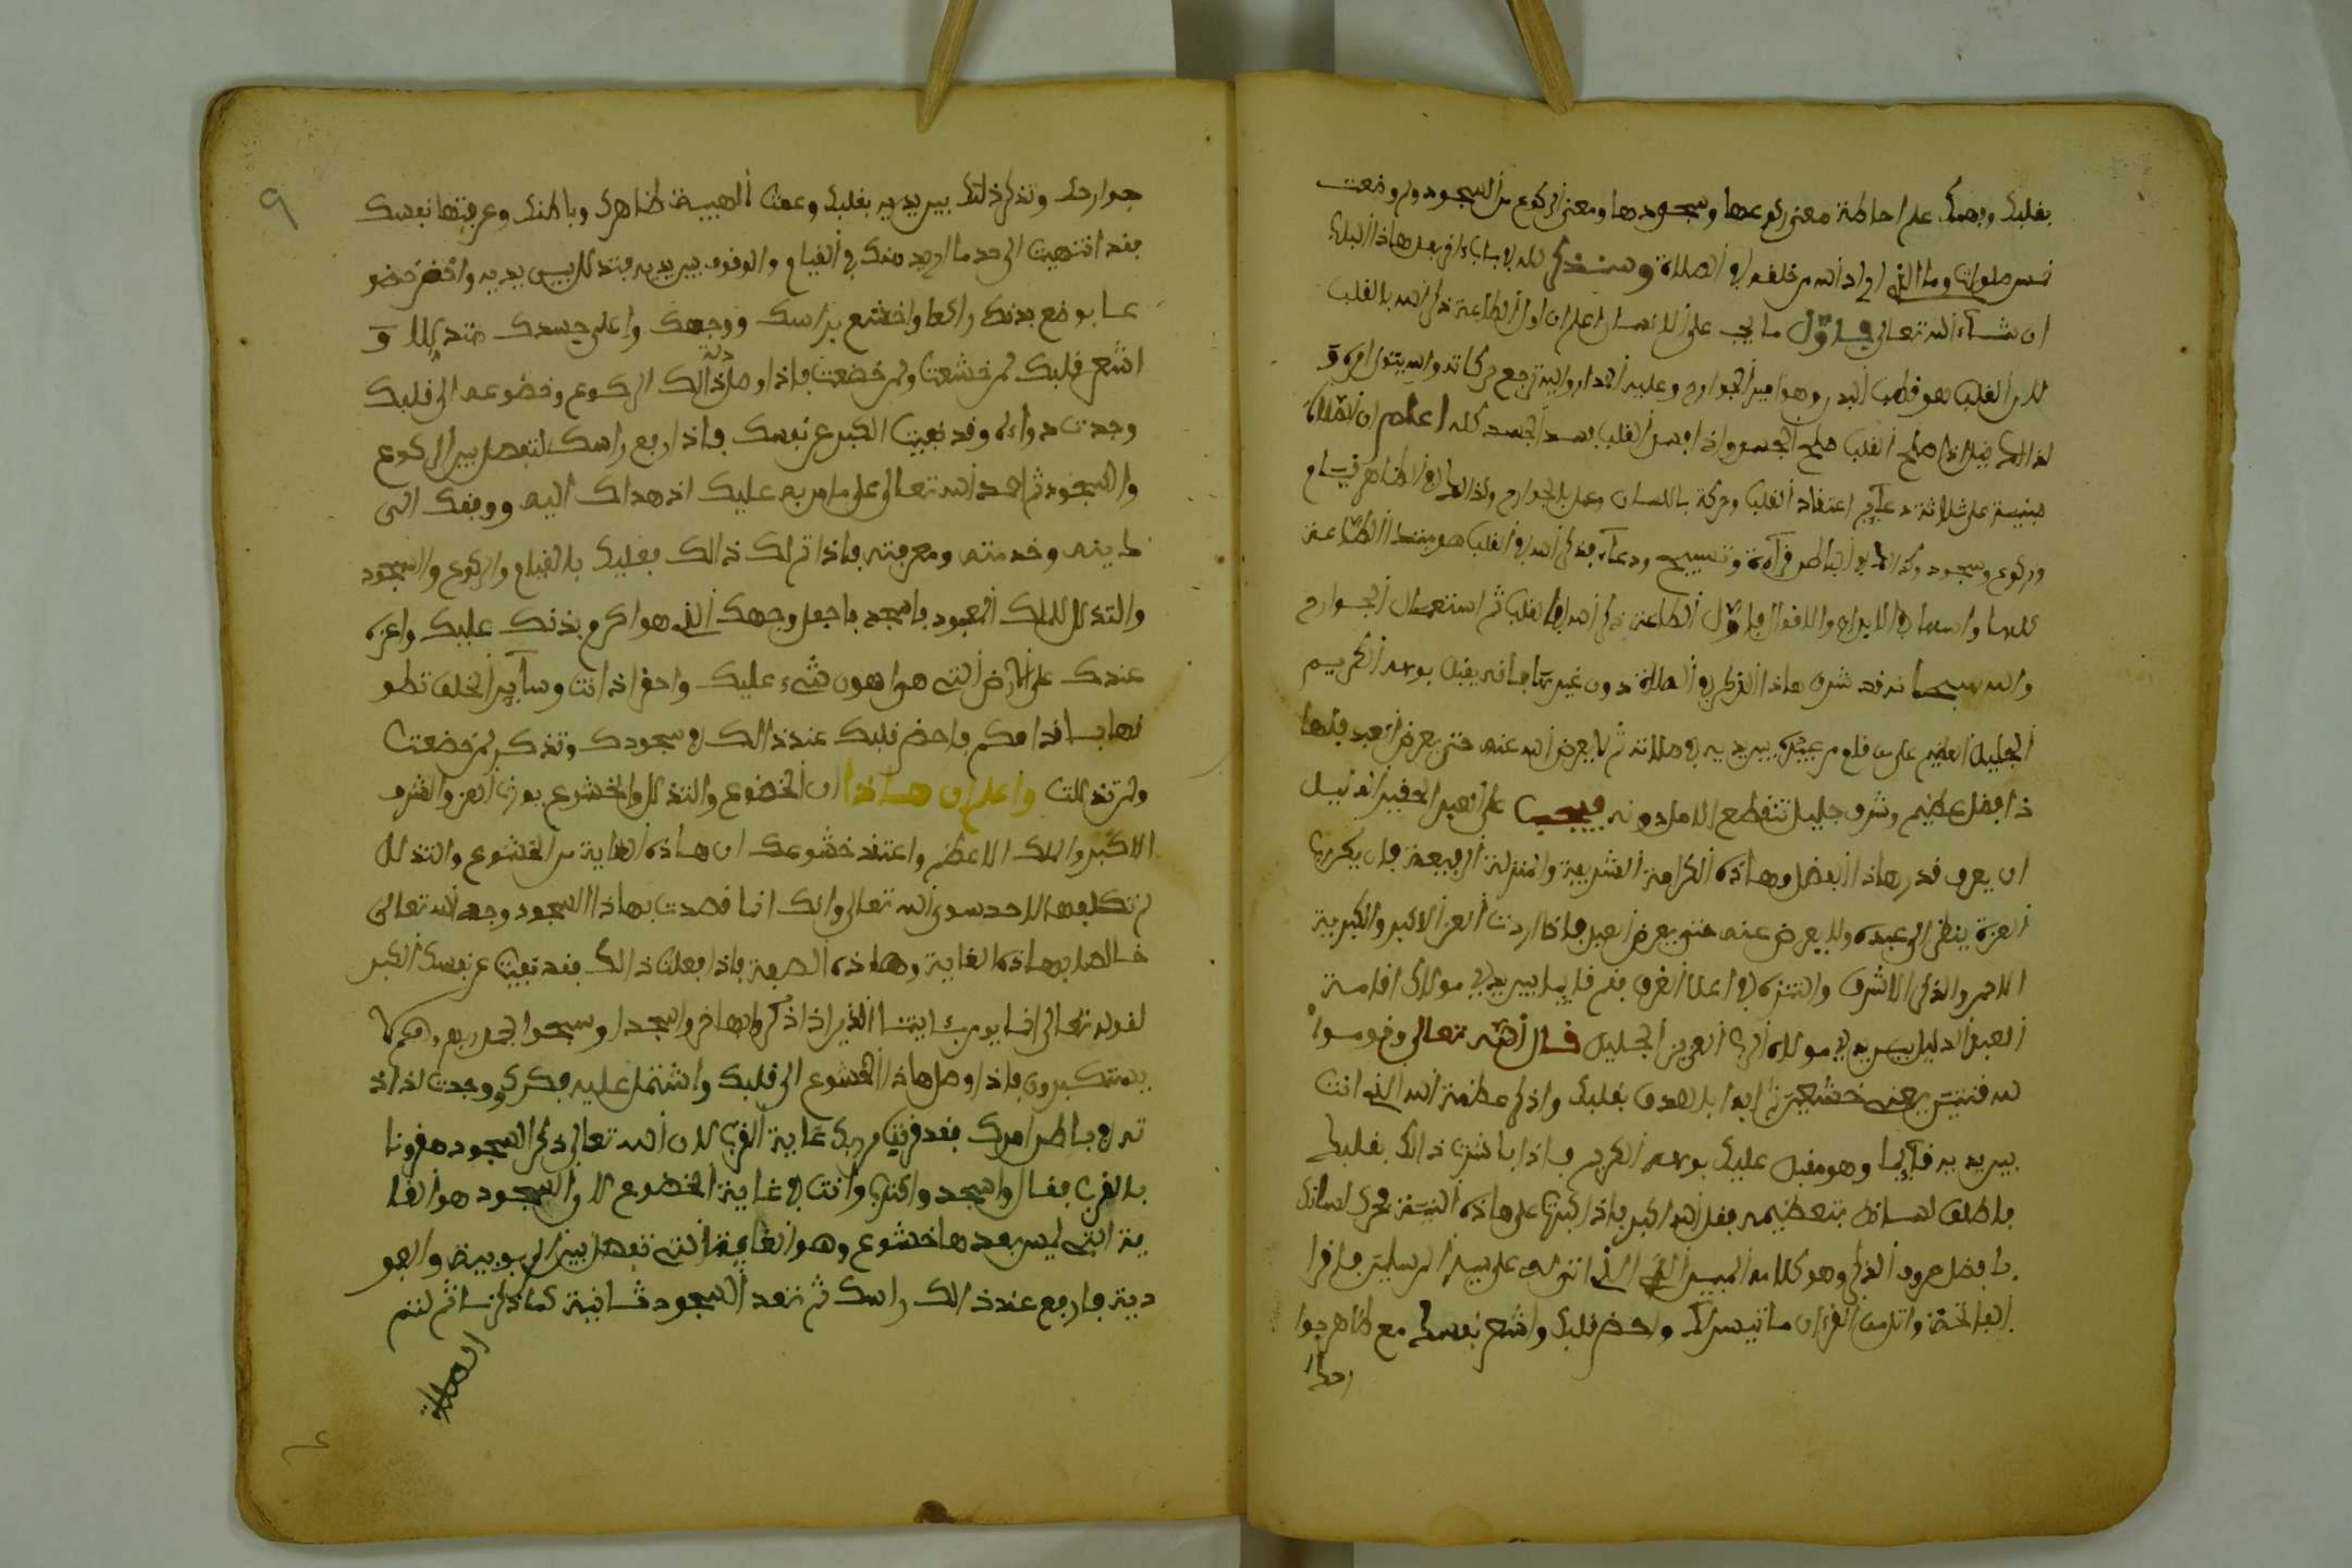 بقلبك وبهمك على احاطة معنى ركوعها وسجودها ومعنى الركوع من السجود ولم وضعت
خمس صلوات وما الذي اراد الله من خلقه في الصلاة وسنذكر لك في باب اخر بعد هاذا الباب
ان شاء الله تعالى فاول ما يجب على الانسان اعلم ان اول الطاعة ذكر الله بالقلب
لان القلب هو قطب البدن وهو امير الجوارح وعليه المدار واليه ترجع حركاته
لذالك اذا صلح القلب صلح الجسد واذا فسد القلب فسد الجسد كله اعلم ان الصلاة
مبنية على ثلاثة دعايم اعتقاد القلب وحركة باللسان وعمل بالجوارح وكذالك في الظاهر قيام
وركوع وسجود وكذالك في الباطن قراءة وتسبيح ودعاء فذكر الله في القلب هو مبتدا الطاعة
كلها واساسها في الابدان والاقوال فاول الطاعة ذكر الله في القلب ثم استعمال الجوارح
والله سبحانه قد شرف هاذا الذكر في الصلاة دون غيرها فانه يقبل بوجهه الكريم
الجليل العظيم على من قام من عبيده بين يديه في صلاته ثم لا يعرض الله عنه حتى يعرض العبد فلها
ذا فضل عظيم وشرف جليل تنقطع الامال دونه فيجب على العبد الحقير الذليل
ان يعرف قدر هاذا الفضل وهاذه الكرامة الشريفة والمنزلة الرفيعة فان يكن رب
العزة ينظر الى عبده ولا يعرض عنه حتى يعرض العبد فاذا اردت العز الاكبر والكبرية
الاحمر والذكر الاشرف والتنزه في اعلا الغرف فقم قايما بين يدي مولاك اقامة
العبد الذليل بين يدي مولاه الرب العزيز الجليل قال الله تعالى وقوموا
لله قنتين يعني خشعين ابدا بالصدق بقلبك واذكر عظمة الله الذي انت
بين يديه قايما وهو مقبل عليك بوجهه الكريم فاذا باشرت ذالك بقلبك
فاطلق لسانك بتعظيمه فقل الله اكبر فاذا كبرت على هاذه النية فحرك لسانك
بافضل حروف الذكر وهو كلامه المبين الذي انزله على سيد المرسلين فاقرا
الفاتحة واتل من القرءان ما تيسر لك واحضر قلبك واشعر نفسك مع ظاهر جوا
رحك
٩
جوارحك وتذكر ذلك بين يديه بقلبك وعمت الهيبة ظاهرك وباطنك وعرفتها نفسك
فقد انتهيت الى حد ما اريد منك في القيام والوقوف بين يديه فتذلل بين يديه واخضع خضو
عا بوضع بدنك راكعا واخشع براسك ووجهك واعلى جسدك متذللا و
اشعر قلبك لمن خشعت ولمن خضعت فاذا وصل ذالك الركوع وخضوعه الى قلبك
وجدت دواءه وقد نفيت الكبر عن نفسك فاذا ارفع راسك لتفصل بين الركوع
والسجود ثم احمد الله تعالى على ما من به عليك اذ هداك اليه ووفقك الى
دينه وخدمته ومعرفته فاذا تم لك ذالك بقلبك بالقيام والركوع والسجود
والتذلل للملك المعبود فاسجد فاجعل وجهك الذي هو اكرم بدنك عليك واعزه
عندك على الارض التي هي اهون شيء عليك واحقر اذ انت وساير الخلق تطو
نها باقدامكم فاحضر قلبك عند ذالك في سجودك وتذكر لمن خضعت
ولمن تذللت واعلم ان هاذا ان الخضوع والتذلل والخشوع يورث العز والشرف
الاكبر والملك الاعظم واعتقد خشوعك ان هاذه الغاية من الخشوع والتذلل
لم تكلفها لاحد سوى الله تعالى وانك انما قصدت بهاذا السجود وجه الله تعالى
خالصا بهاذه الغاية وهاذه الصفة فاذا فعلت ذالك فقد نفيت عن نفسك الكبر
لقوله تعالى انما يومن بئايتنا الذين اذا ذكروا بها خروا سجدا وسبحوا بحمد ربهم وهم لا
يستكبرون فاذا وصل هاذا الخشوع الى قلبك واشتمل عليه فكرك ووجدت لذاذ
ته في باطن امرك فقد قربت من ربك غاية القرب لان الله تعالى ذكر السجود مقرونا
بالقرب فقال واسجد واقترب وانت في غاية الخضوع لان السجود هو الغا
ية التي ليس بعدها خشوع وهو الغاية التي تفصل بين الربوبية والعبو
دية فارفع عند ذالك راسك ثم تعد السجود ثانية كما ذكرنا ثم لتتم
الصلاة